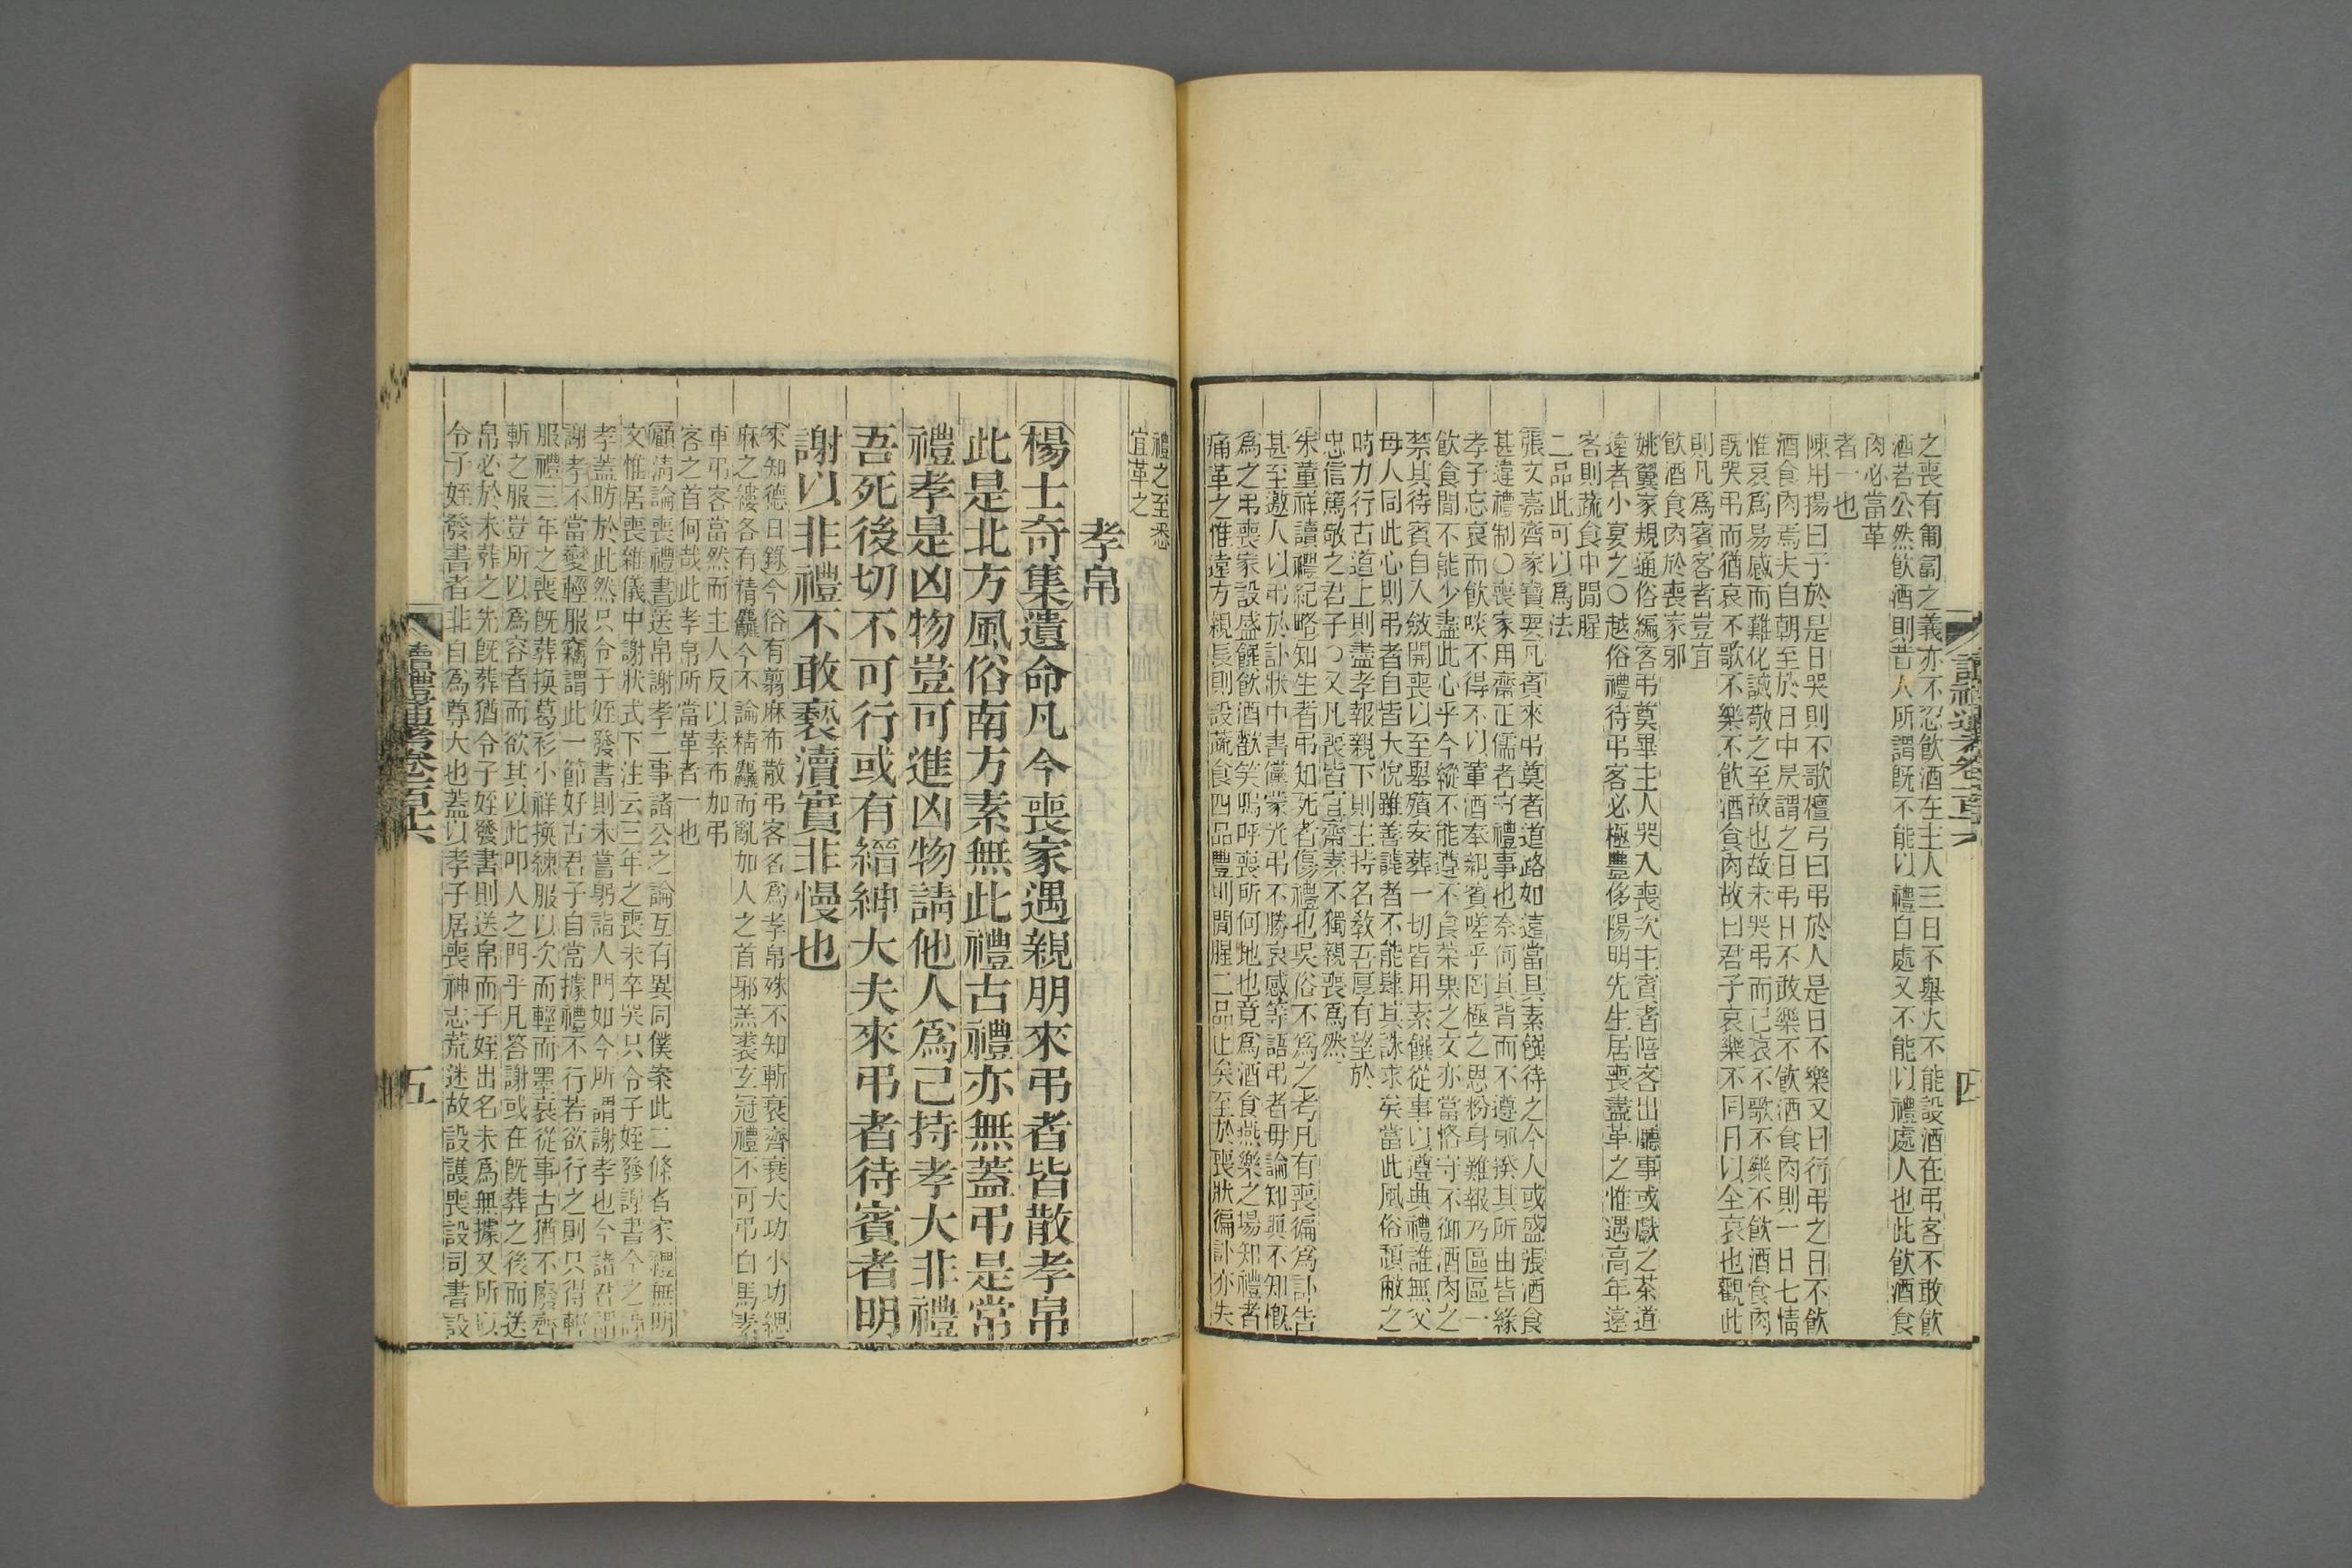 之喪有匍匐之義亦不忍飲酒在主人三日不舉火不能設酒在弔客不敢飲
酒若公然飲酒則昔人所謂旣不能以禮自處又不能以禮處人也此飲酒食
肉必當革
者一也
陳用揚曰子於是日哭則不歌檀弓曰弔於人是日不樂又曰行弔之日不飲
酒食肉焉夫自朝至於日中昃謂之日弔日不敢樂不飲酒食肉則一日七情
惟哀爲易感而難化誠敬之至故也故未哭弔而已哀不歌不樂不飲酒食肉
旣哭弔而猶哀不歌不樂不飲酒食肉故曰君子哀樂不同日以全哀也觀此
則凡爲賓客者豈宜
飲酒食肉於喪家邪
姚翼家規通俗編客弔奠畢主人哭入喪次主賓者陪客出廳事或獻之茶道
遠者小宴之〇越俗禮待弔客必極豐侈陽明先生居喪盡革之惟遇高年遠
客則蔬食中閒腥
二品此可以爲法
張文嘉齊家寶要凡賓來弔奠者道路如遠當具素饌待之今人或盛張酒食
甚違禮制〇喪家用齋正儒者守禮事也奈何其背而不遵邪揆其所由皆緣
孝子忘哀而飲啖不得不以葷酒奉親賓嗟乎罔極之恩粉身難報乃區區一
飲食閒不能少盡此心乎今縱不能遵不食菜果之文亦當恪守不御酒肉之
禁其待賓自入斂開喪以至舉殯安葬一切皆用素饌從事以遵典禮誰無父
母人同此心則弔者自皆大悅雖善譊者不能肆其誅求矣當此風俗頹敝之
時力行古道上則盡孝報親下則主持名敎吾厚有望於
忠信篤敬之君子〇又凡喪皆宜齋素不獨親喪爲然
朱董祥讀禮紀略知生者弔知死者傷禮也吳俗不爲之考凡有喪徧爲訃告
甚至邀人以弔於訃狀中書儻蒙光弔不勝哀感等語弔者毋論知與不知慨
爲之弔喪家設盛饌飲酒歡笑嗚呼喪所何地也竟爲酒食燕樂之場知禮者
痛革之惟遠方親長則設蔬食四品豐則閒腥二品止矣至於喪狀徧訃亦失
禮之至悉
宜革之
孝帛
楊士奇集遺命凡今喪家遇親朋來弔者皆散孝帛
此是北方風俗南方素無此禮古禮亦無蓋弔是常
禮孝是凶物豈可進凶物請他人爲己持孝大非禮
吾死後切不可行或有縉紳大夫來弔者待賓者明
謝以非禮不敢褻瀆實非慢也
來知德日錄今俗有翦麻布散弔客名爲孝帛殊不知斬衰齊衰大功小功緦
麻之縷各有精麤今不論精麤而亂加人之首邪羔裘玄冠禮不可弔白馬素
車弔客當然而主人反以素布加弔
客之首何哉此孝帛所當革者一也
顧淸論喪禮書送帛謝孝二事諸公之論互有異同僕案此二條者家禮無明
文惟居喪雜儀中謝狀式下注云三年之喪未卒哭只令子姪發謝書今之謝
孝蓋昉於此然只令子姪發書則未嘗躬詣人門如今所謂謝孝也今諸君謂
謝孝不當變輕服竊謂此一節好古君子自當據禮不行若欲行之則只得輕
服禮三年之喪旣葬換葛衫小祥換練服以次而輕而墨衰從事古猶不廢齊
斬之服豈所以爲容者而欲其以此叩人之門乎凡答謝或在旣葬之後而送
帛必於未葬之先旣葬猶令子姪發書則送帛而子姪出名未爲無據又所以
令子姪發書者非自爲尊大也蓋以孝子居喪神志荒迷故設護喪設司書設
讀禮通考卷一百十六
四
讀禮通考卷一百十六
五